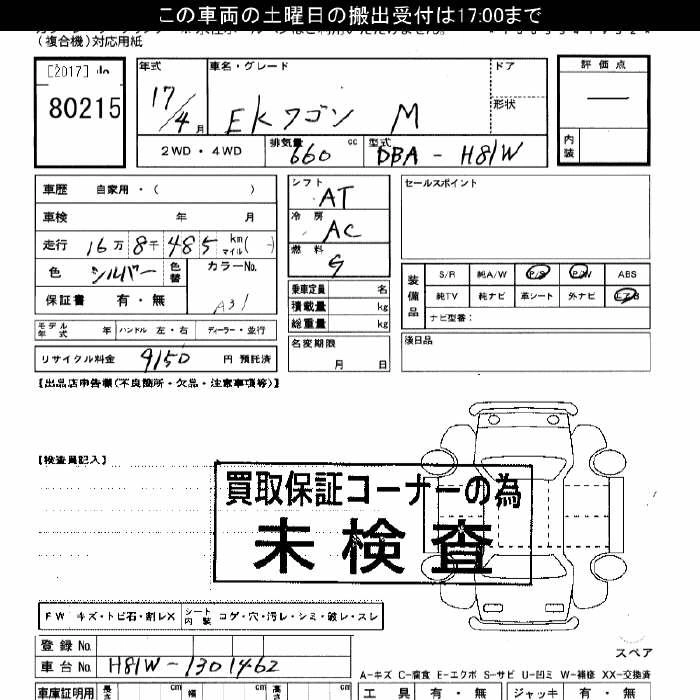 この車両の土曜日の搬出受付は17:00まで
(複合機)対応用紙
[2017]
80215
年式 車名・グレード ドア 評価点
17/4月 EKワゴン M 形状 —
2WD・4WD 排気量 660 cc 型式 DBA - H81W 内装
車歴 自家用・( )
車検 年 月
走行 16万8千485 km マイル( - )
色 シルバー 色替 カラーNo. A31
保証書 有・無
モデル年式 年 ハンドル 左・右 ディーラー・並行
リサイクル料金 9150 円 預託済
シフト AT
冷房 AC
燃料 G
乗車定員 名
積載量 kg
総重量 kg
名変期限 月 日
セールスポイント
装備品 S/R 純A/W P/S P/W ABS
純TV 純ナビ 革シート 外ナビ エアB
ナビ型番:
後日品
【出品店申告欄(不良箇所・欠品・注意事項等)】
【検査員記入】
買取保証コーナーの為
未検査
FW キズ・トビ石・割レX シート内装 コゲ・穴・汚レ・シミ・破レ・スレ
登録No.
車台No. H81W-1301462
スペア
A-キズ C-腐食 E-エクボ S-サビ U-凹ミ W-補修 XX-交換済
車庫証明用 長さ cm 幅 cm 高さ cm
工具 有・無 ジャッキ 有・無